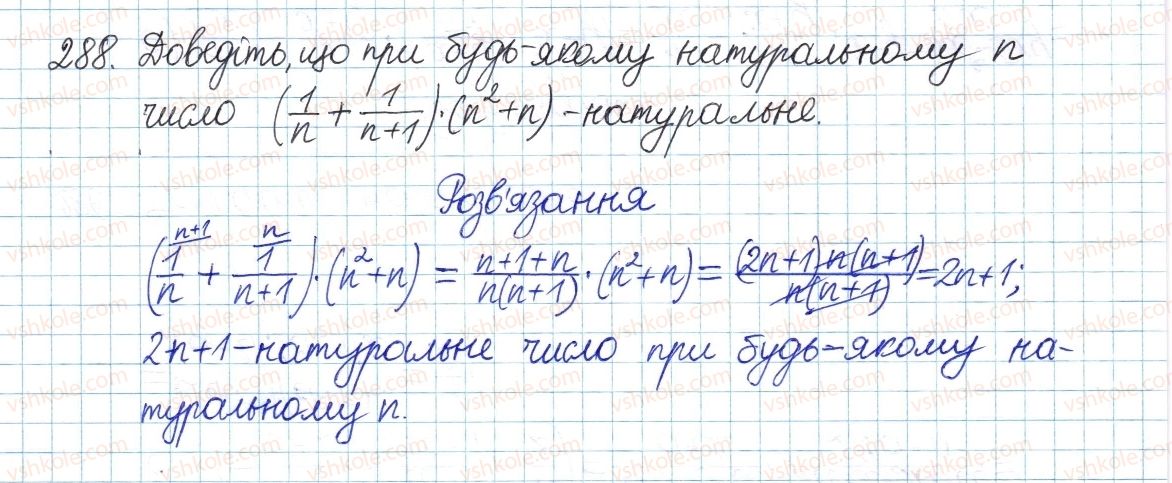 288. Доведіть, що при будь-якому натуральному n
число (1/n + 1/(n+1))·(n²+n) - натуральне.
Розв'язання
(1/n^{n+1} + 1/(n+1)^{n})·(n²+n) = (n+1+n)/(n(n+1))·(n²+n) = ((2n+1)n(n+1))/(n(n+1)) = 2n+1;
2n+1 - натуральне число при будь-якому на-
туральному n.
vshkole.com